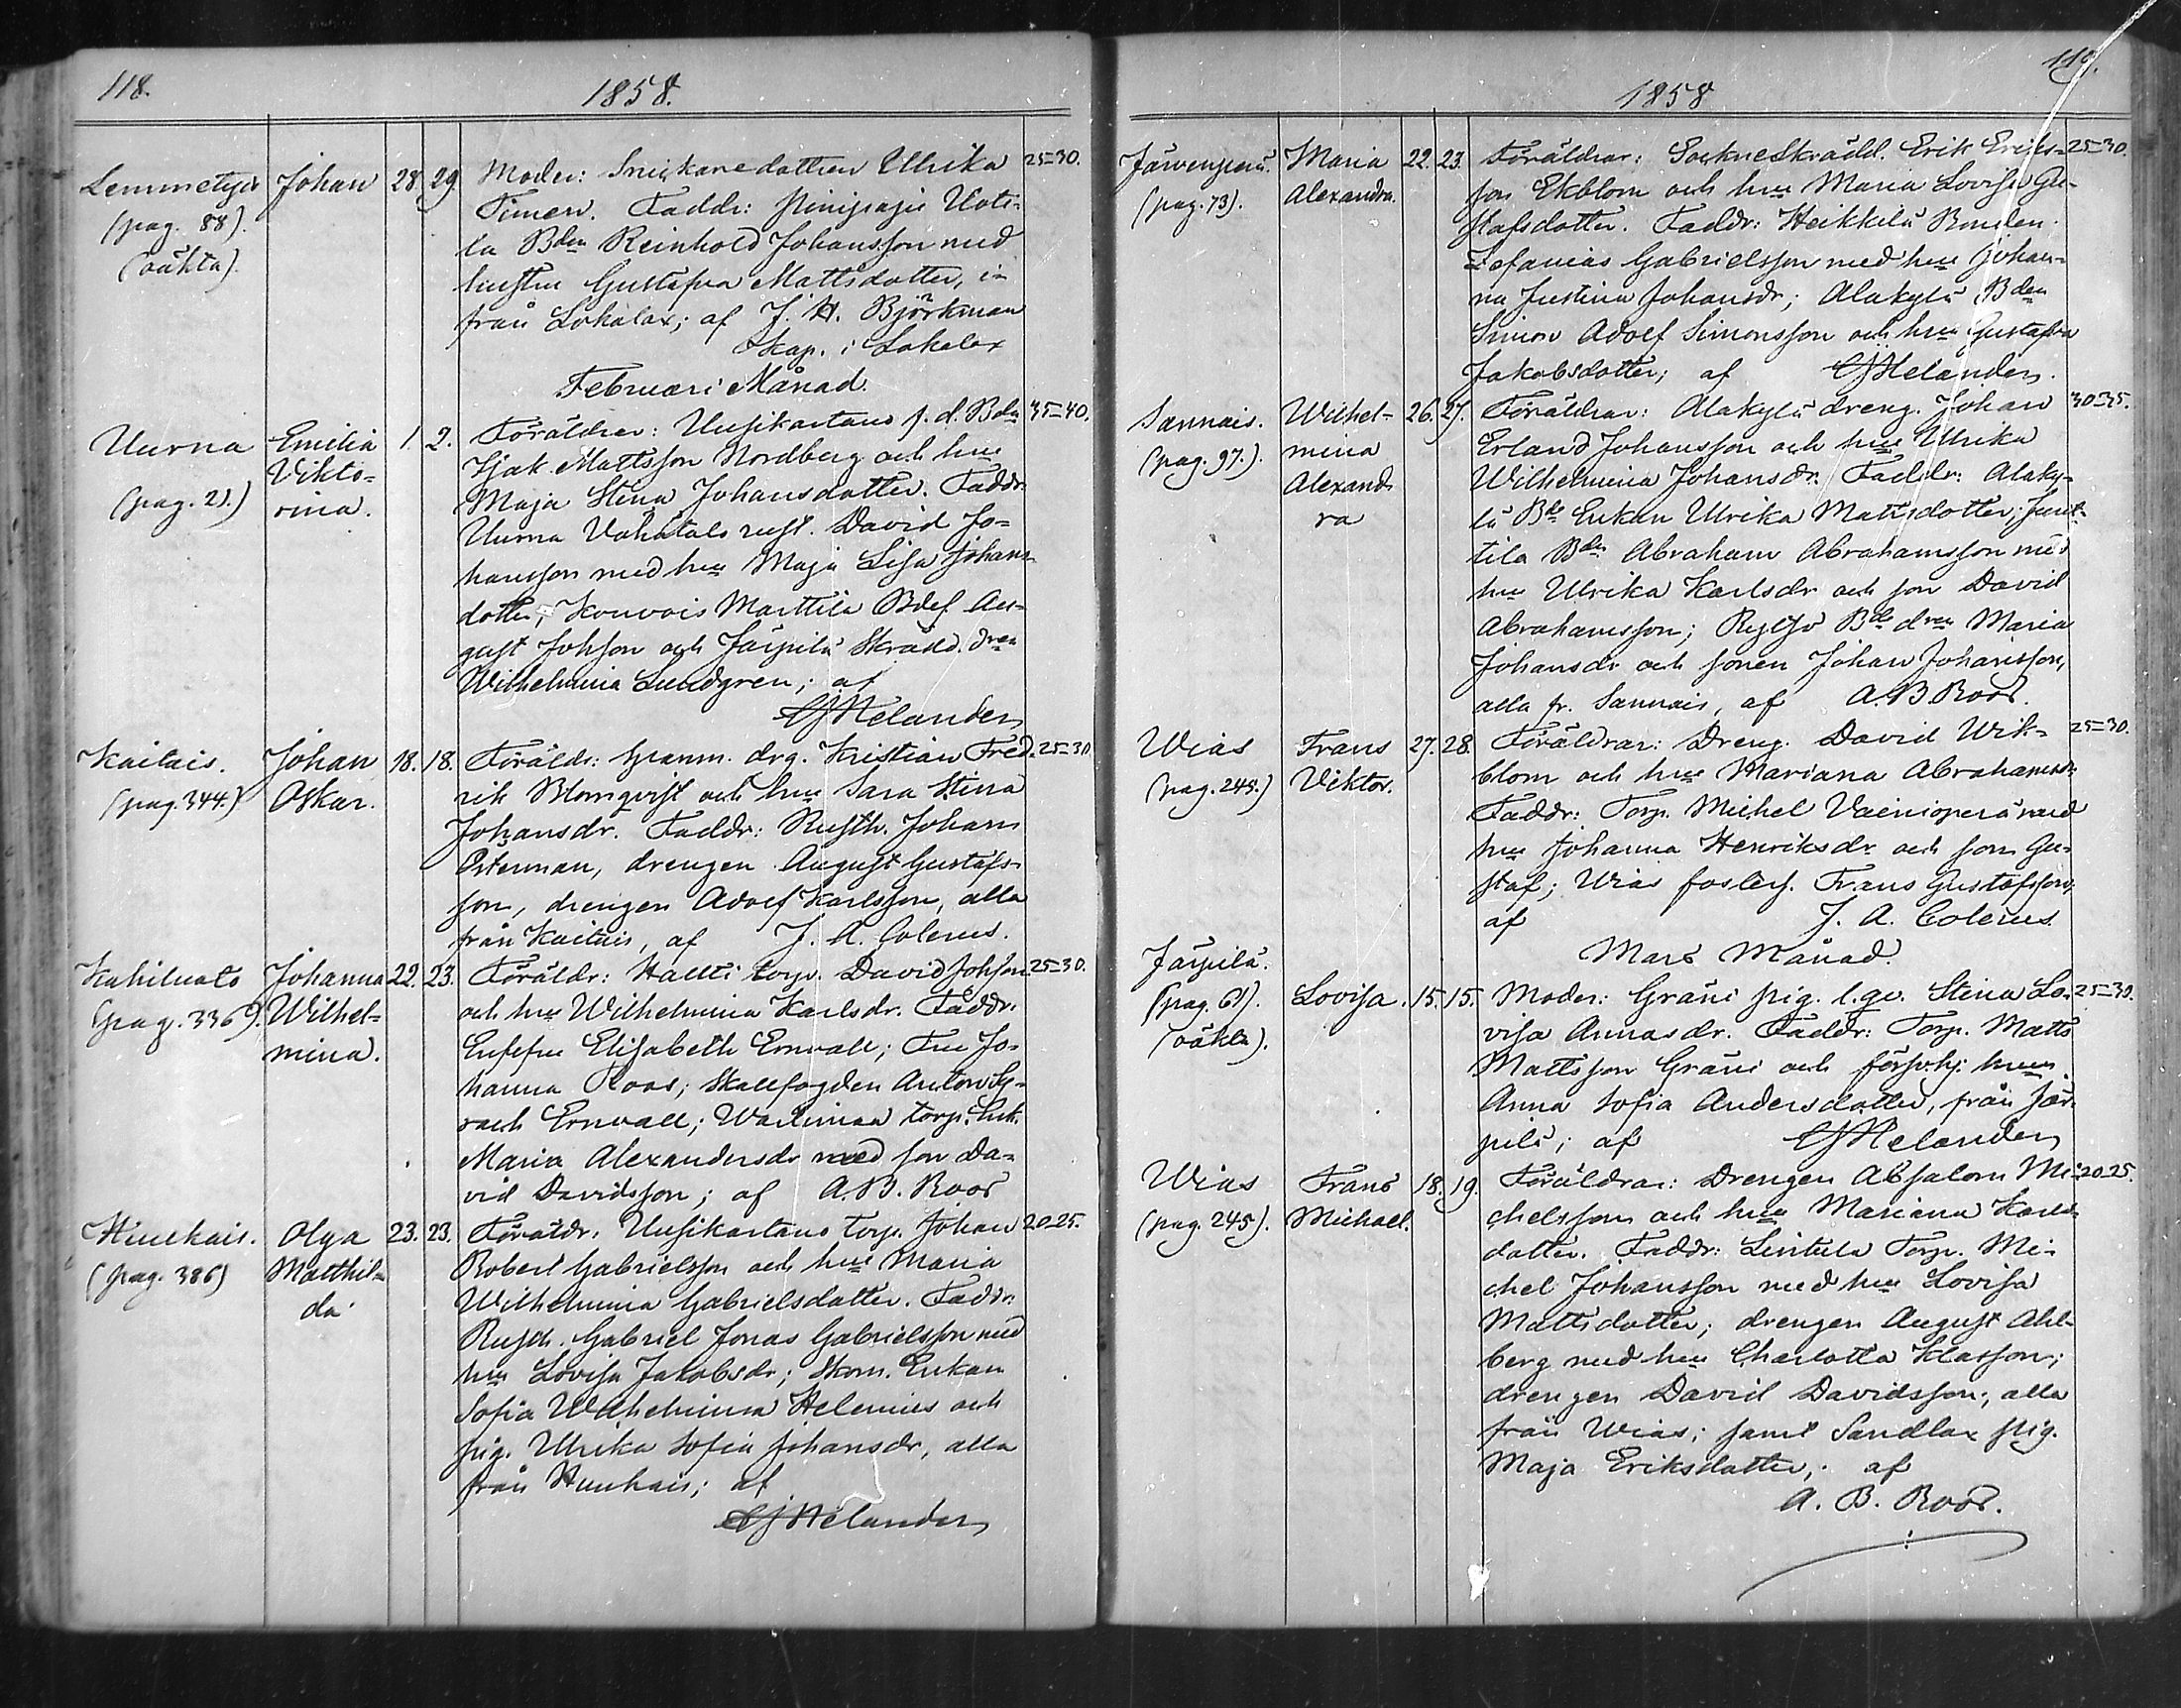 118.
1858.
Lemmetyis Johan 28. 29. Moder: Snickaredottren Ulrika 25=30.
(pag. 88).
(oäkta).
Timen. Faddr: Pinipajis Uots-
la Bden Reinhold Johansson med
hustru Gustafva Mattsdotter, i-
från Lokalax; af J. H. Björkman
Skap. i Lokalax
Februari Månad.
Uurna Emilia Vikto=rina. 1. 2. Föräldrar: Uusikartano f. d. Bden 35=40.
(pag. 21.)
Isak Mattsson Nordberg och hnu
Maja Stina Johansdotter. Faddr.
Uurna Vähätalo rust. David Jo=
hansson med hnu Maja Lisa Johans-
dotter, Kouvois Marttila Bdes. Au-
gust Johsson och Järpilä Skrädd. dren
Wilhelmina Lundgren; af
CJHelander
Kaitais. Johan Oskar. 18. 18. Föräldr: Gramm. drg. Kristian Fred- 25=30
(pag. 344.)
rik Blomqvist och hnu Sara Stina
Johansdr. Faddr: Rusth. Johan
Österman, drengen August Gustafs-
son, drengen Adolf Karlsson, alla
från Kaitais, af J. A. Colerus.
Kahiluoto Johanna Wilhel=mina. 22. 23. Föräldr: Hallti torp. David Johsson 25=30.
(pag. 336).
och hnu Wilhelmina Karlsdr. Faddr.
Enkefru Elisabeth Ernvall; Fru Jo-
hanna Roos; Skallfogden Anton Sy-
rach Ernvall; Warlimaa torp. Enk.
Maria Alexandersdr med son Da-
vid Davidsson; af A. B. Roos
Hunkais. Olga Matthil=da 23. 23. Föräldr. Uusikartano Torp. Johan 20=25.
(pag. 386)
Robert Gabrielsson och hnu Maria
Wilhelmina Gabrielsdotter. Faddr:
Rusth. Gabriel Jonas Gabrielsson med
hnu Lovisa Jakobsdr; Skom. Enkan
Sofia Wilhelmina Helenius och
pig. Ulrika Sofia Johansdr, alla
från Hunkais; af
CJHelander
119.
1858
Järvenperä. Maria Alexandra. 22. 23. Föräldrar: Sockneskrädd. Erik Eriks- 25=30.
(pag. 73).
son Ekblom och hnu Maria Lovisa Gu-
stafsdotter. Faddr: Heikkilä Bonden
Zefanias Gabrielsson med hnu Johan-
na Justina Johansdr; Alakylä Bden
Simon Adolf Simonsson och hnu Gustafva
Jakobsdotter; af CJHelander.
Sannais. Wilhel-mina Alexandra 26. 27. Föräldrar: Alakylä dreng. Johan 30=35.
(pag. 97.).
Erland Johansson och hnu Ulrika
Wilhelmina Johansdr. Faddr: Alaky-
lä Bde Enkan Ulrika Mattsdotter; Junt-
tila Bden Abraham Abrahamsson med
hnu Ulrika Karlsdr och son David
Abrahamsson; Bde dren Maria
Johansdr och sonen Johan Johansson,
alla fr. Sannais, af A. B Roos.
Wias Frans Viktor. 27. 28. Föräldrar: Dreng. David Wik- 25=30.
(pag. 245.)
blom och hnu Mariana Abrahamsdr
Faddr: Torp. Michel Vainioperä med
hnu Johanna Henriksdr och son Gu-
staf; Wias fosters. Frans Gustafsson,
af J. A. Colerus
Mars Månad.
Järpilä. Lovisa. 15. 15. Moder: Gräni pig. l. qv. Stina Lo- 25=30.
(pag. 61).
(oäkta).
visa Annasdr. Faddr: Torp. Matts
Mattsson Gräni och hnu
Anna Sofia Andersdotter, från Jär-
pilä; af CJHelander
Wias Frans Michael. 18. 19. Föräldrar: Drengen Absalom Mi- 20=25.
(pag. 245).
chelsson och hnu Mariana Karls-
dotter. Faddr: Lintula Torp. Mi-
chel Johansson med hnu Lovisa
Mattsdotter; drengen August Ahl-
berg med hnu Charlotta Klasson;
drengen David Davidsson; alla
från Wias; samt Sandlax pig.
Maja Eriksdotter; af
A. B. Roos.